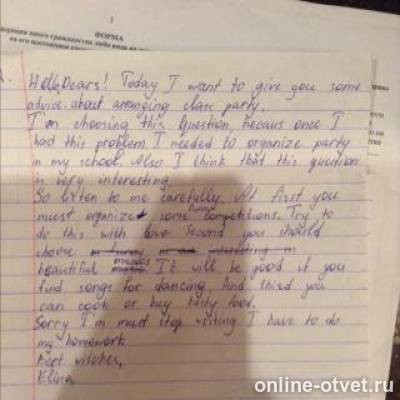 1
ФОРМА
Hello, Dears! Today I want to give you some
advice about arranging class party.
I'm choosing this question, becaus once I
had this problem. I needed to organize party
in my school. Also I think that this question
is very interesting.
So listen to me carefully. At first you
must organize some funny competitions. Try to
do this with love. Second you should
choose interesting
beautiful It will be good if you
find songs for dancing. And third you
can cook or buy tasty food.
Sorry I'm must stop writing I have to do
my homework
Best witches,
Elina
online-otvet.ru